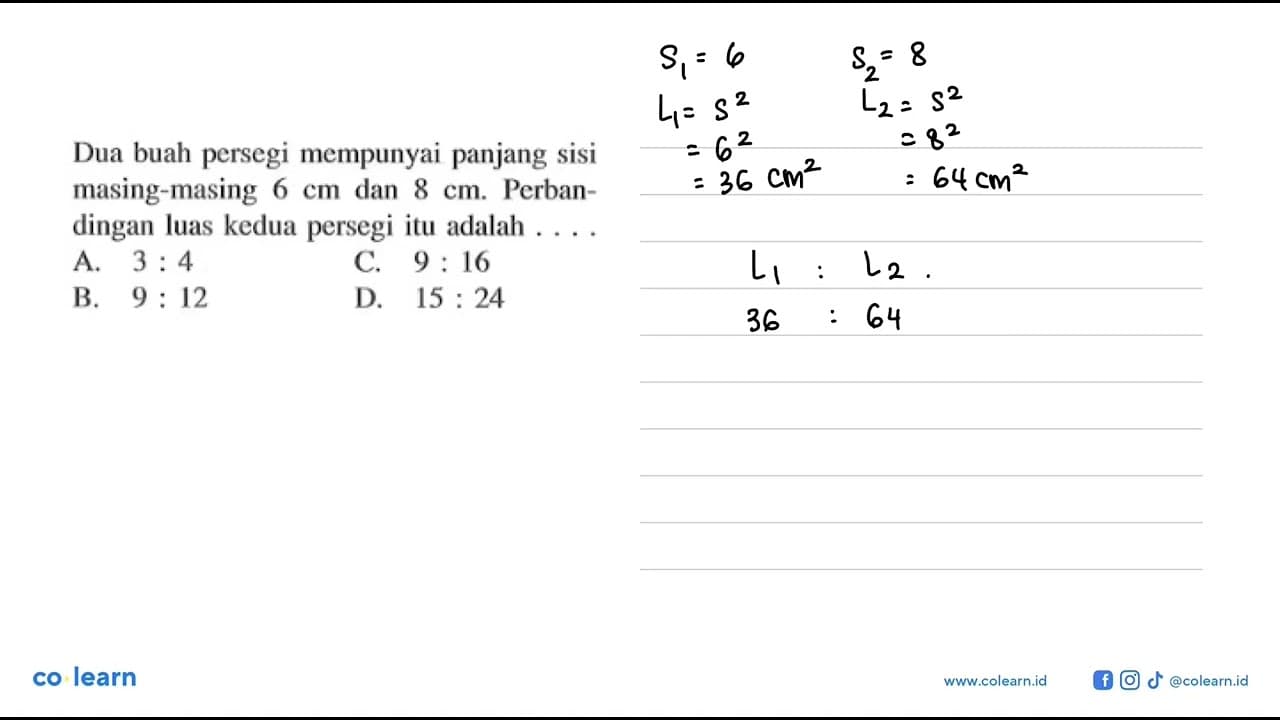 Dua buah persegi mempunyai panjang sisi
masing-masing 6 cm dan 8 cm. Perban-
dingan luas kedua persegi itu adalah . . . .
A. 3 : 4 C. 9 : 16
B. 9 : 12 D. 15 : 24
S₁ = 6 S₂ = 8
L₁ = s² L₂ = s²
= 6² = 8²
= 36 cm² = 64 cm²
L₁ : L₂ .
36 : 64
co learn
www.colearn.id @colearn.id